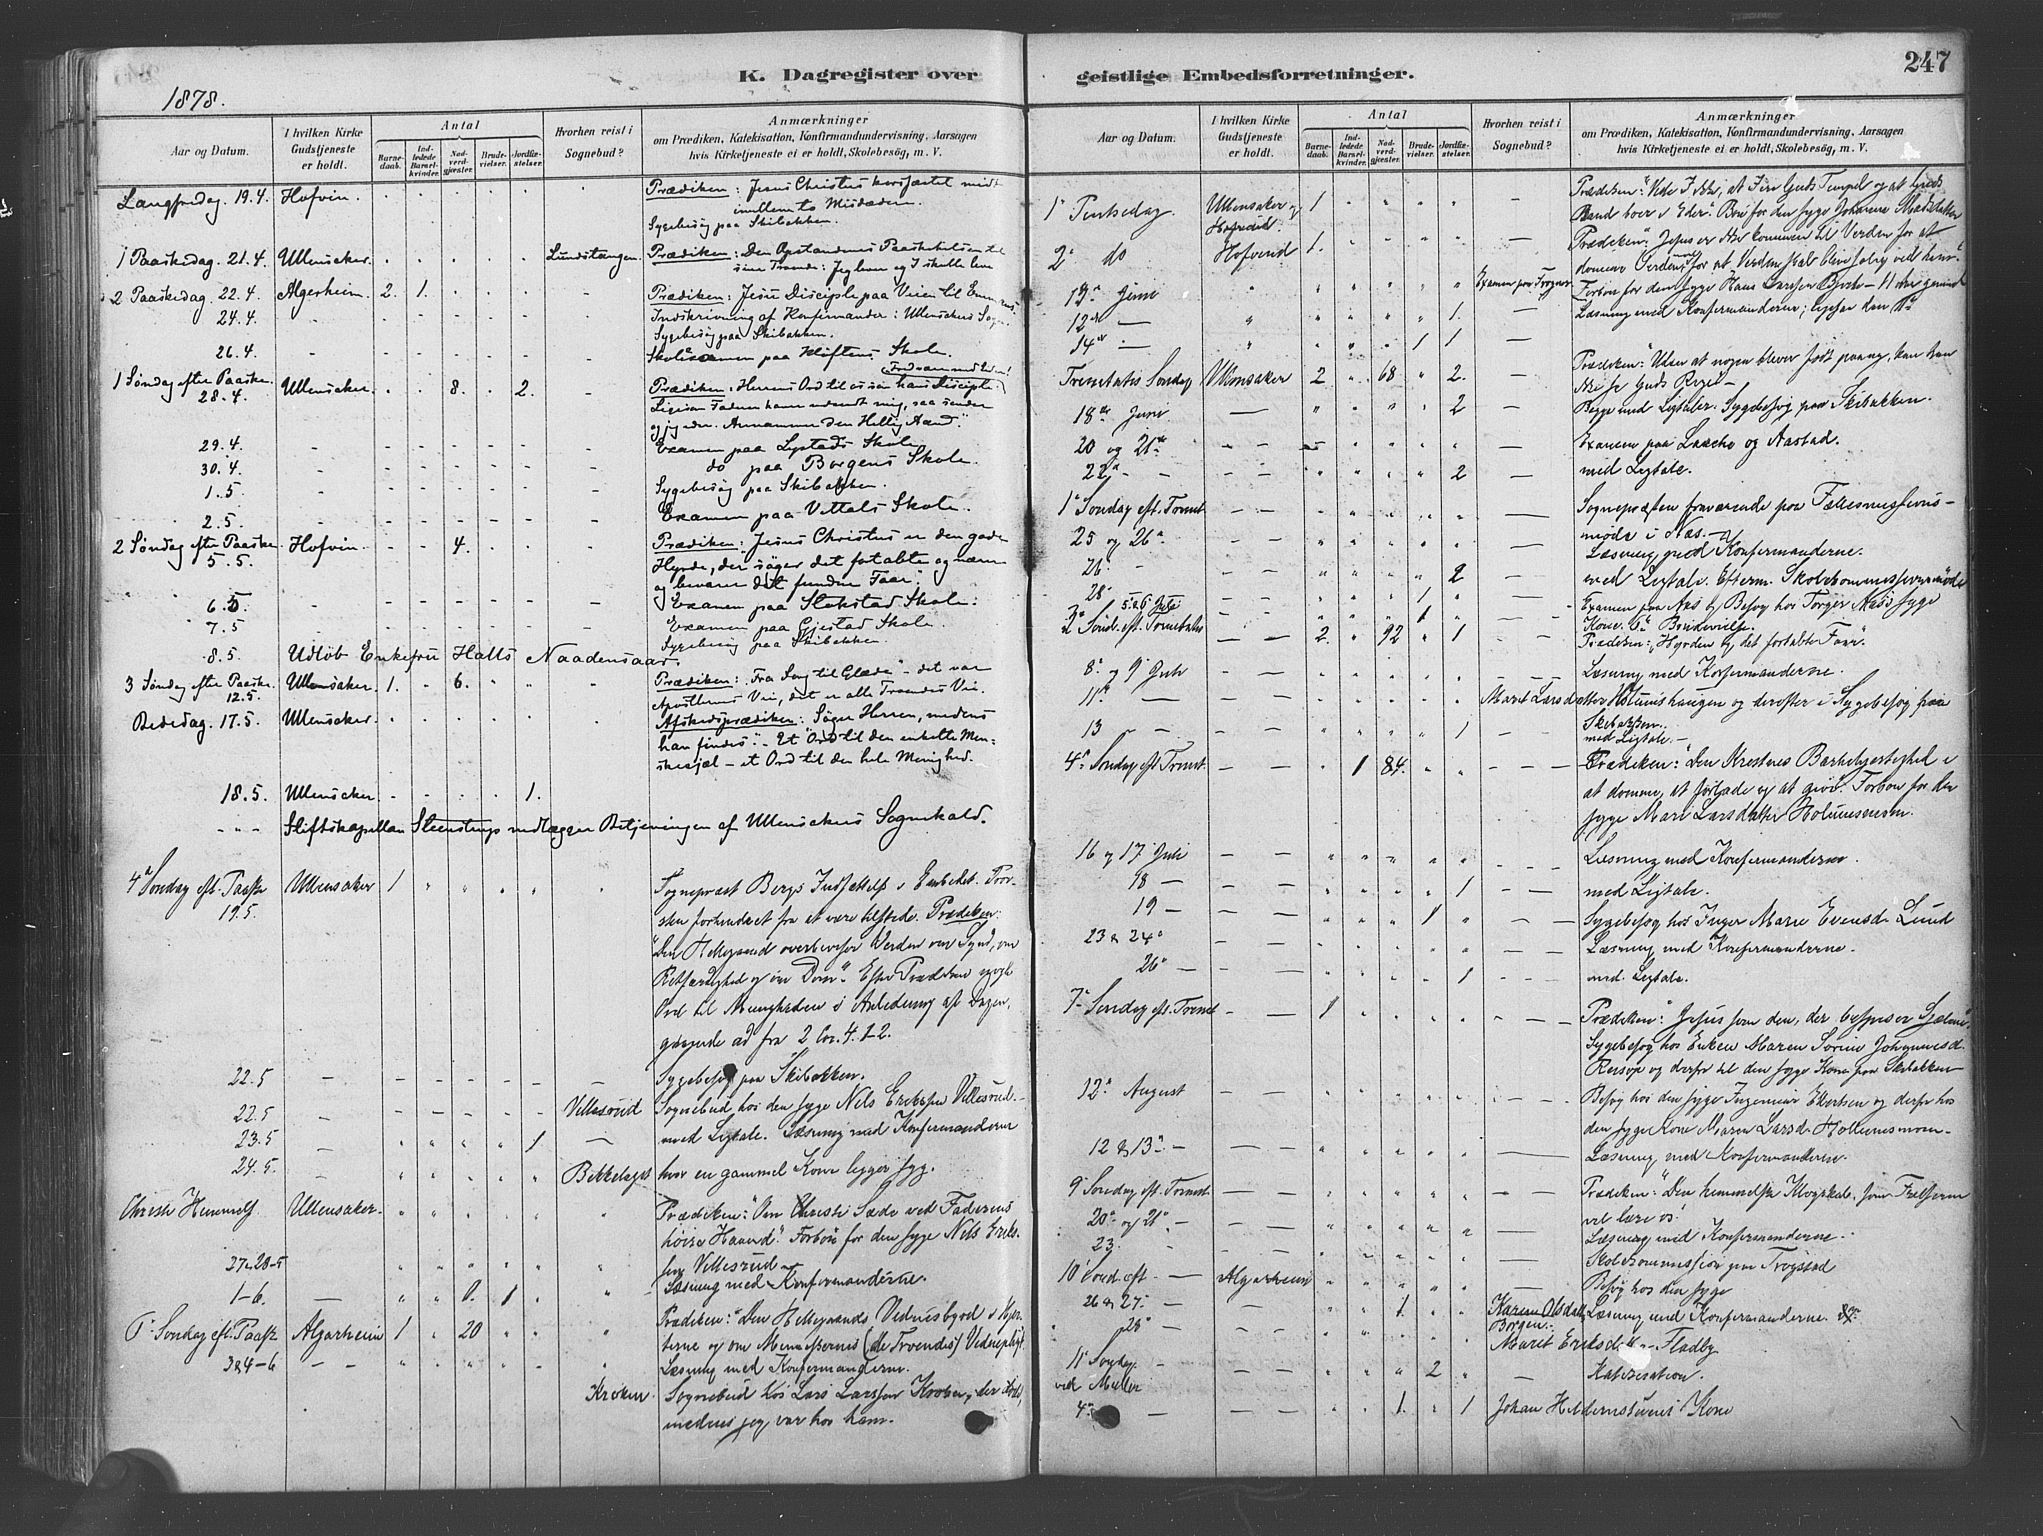 247
K. Dagregister over
geistlige Embedsforretninger.
1878.
Aar og Datum.
I hvilken Kirke Gudstjeneste er holdt.
Antal
Barnedaab.
Indledede Barselkvinder.
Nadverdgjester.
Brudevielser.
Jordfæstelser.
Hvorhen reist i Sognebud?
Anmærkninger
om Prædiken, Katekisation, Konfirmandundervisning, Aarsagen
hvis Kirketjeneste ei er holdt, Skolebesög, m. V.
Langfredag 19.4. Hofvin. Prædiken: Jesus Christus korsfæstet midt
imellem to Misdædere.
Sygebesög paa Skibakken.
1 Paaskedag. 21.4. Ullensaker. Lundstangen. Prædiken: Den Opstandnes Paaskehilsen til
sine Troende: Jeg lever og I skulle leve
2 Paaskedag. 22.4. Algerheim. 2. 1. Prædiken: Jesu Disciple paa Veien til Emmaus.
24.4. Indskrivning af Konfirmander i Ullensakers Sogn.
Sygebesög paa Skibakken.
26.4. Skoleexamen paa Kløftens Skole.
1 Søndag efter Paaske 28.4. Ullensaker. 8. 2. Prædiken: Herrens Ord til os som hans Disciple
Ligesom Faderen haver udsendt mig, saa sender
og jeg eder. Annammer den Hellig Aand."
29.4. Examen paa Lystads Skole
30.4. do paa Borgens Skole.
1.5. Sygebesög paa Skibakken.
2.5. Examen paa Vittals Skole.
2 Søndag efter Paaske 5.5. Hofvin. 4. Prædiken: Jesus Christus er den gode
Hyrde, der söger det fortabte og nærer
og bevarer det fundne Faar".
6.5 Examen paa Slokstad Skole.
7.5 Examen paa Gjestad Skole.
8.5. Udløb Enkefru Halls Naadensaar. Sygebesög paa Skibakken
3 Søndag efter Paaske 12.5. Ullensaker. 1. 6. Prædiken: "Fra Sorg til Glæde" det var
Apostlernes Vei, det er alle Troendes Vei.
Bededag. 17.5. Ullensaker. Afskedsprædiken: Söger Herren, medens
han findes". Et Ord til den enkelte Men=
skesjæl – et Ord til den hele Menighed.
18.5. Ullensaker 1.
Stiftskapellan Steenstrup nedlægger Betjeningen af Ullensakers Sognekald.
4de Søndag eft. Paaske 19.5. Ullensaker 1 Sognepræst Bergs Indsættelse i Embedet. Prov-
sten forhindret fra at være tilstede. Prædiken:
"Den Helligaand overbeviser Verden om Synd, om
Retfærdighed og om Dom". Efter Prædiken
Ord til Menigheden i Anledning af Dagen,
gaaende ud fra 2 Cor. 4. 1-2.
22.5 Sygebesøg paa Skibakken.
22.5 Villesrud Sognebud hos den syge Nils Eriksen Villesrud.
23.5 1 med Ligtale. Læsning med Konfirmanderne
24.5. Bekkelaget hvor en gammel Kone ligger syg.
Christi Himmelf Ullensaker. Prædiken: "Om Christi Sæde ved Faderens
høire Haand". Forbøn for den syge Nils Eriks-
sen Villesrud
27-28-5 Læsning med Konfirmanderne.
1-6. 0. 1
6te Søndag eft. Paaske Algarheim 1 20 Prædiken: "Den Helligaands Vidnesbyrd i Hjer-
terne og om Menneskernes (de Troendes) Vidnepligt.
3&4-6 Læsning med Konfirmanderne.
Kroken Sognebud hos Lars Larssen Kroken, der døde,
medens jeg var hos ham.
Aar og Datum.
I hvilken Kirke Gudstjeneste er holdt.
Antal
Barnedaab.
Indledede Barselkvinder.
Nadverdgjester.
Brudevielser.
Jordfæstelser.
Hvorhen reist i Sognebud?
Anmærkninger
om Prædiken, Katekisation, Konfirmandundervisning, Aarsagen
hvis Kirketjeneste ei er holdt, Skolebesög, m. V.
1 Pintsedag. Ullensaker og 1 Prædiken: "Vide I ikke, at I ere Guds Tempel og at Guds
Aand boer i Eder". Bøn for den syge Johanne
2 do Hofvind 1. Prædiken: "Jesus er ikke kommen til Verden for at
dømme Verden, men for at Verden skal blive salig ved ham".
Juni Examen paa Frogner Forbøn for den syge Hans Larssen
12te 1. Læsning med Konfirmanderne;
14de 1 1
Trinitatis Søndag Ullensaker 2 68 2. Prædiken: "Uden at nogen bliver født paany, kan han
ikke se Guds Rige" –
18de Juni 2 Begge med Ligtaler. Sygebesøg paa Skibakken.
20 og 21 Examen paa og Aastad.
22 2 med Ligtale.
1 Søndag eft. Trinit Sognepræsten fraværende paa Fællesmissions-
møde i Næs.
25 og 26 Læsning med Konfirmanderne.
26 2 med Ligtale. Efterm. Skolekommissionsmøde
28 Examen paa Aas og Besøg hos Torger syge
5&6 Juli 1 Kone. Brudevielse.
Sönd. eft. Trinitatis 2. 92 1 Prædiken: "Hyrden og det fortabte Faar".
8 og 9 Juli Læsning med Konfirmanderne.
11 Maret Larsdatter og derefter i Sygebesøg paa
Skibakken.
13 1 med Ligtale.
4 Søndag eft. Trinit 1 84. Prædiken: "Den Kristnes Barmhjertighed i
at dømme, at forlade og at give. Forbøn for den
syge Mari Larsdatter
16 og 17 Juli Læsning med Konfirmanderne.
18 1 med Ligtale.
19 1 Sygebesøg hos Inger Marie Evensd. Lund
23 & 24 Læsning med Konfirmanderne.
26 1 med Ligtale.
7 Søndag eft. Trinit 1 Prædiken: "Jesus som den, der bespiser Sjælene".
Sygebesøg hos Enken Maren Sørine Johannesd.
og derfra til den syge Kone paa Skibakken
12 August Besøg hos den syge Ingeniør og derfra hos
den syge Kone Maren Larsd.
12 & 13 Læsning med Konfirmanderne.
9 Søndag eft. Trinit. Prædiken: "Den himmelske Klogskab, som Frelseren
vil lære os".
20 og 21 Læsning med Konfirmanderne.
23. Skolekommission paa Trøgstad
10 Sønd. eft Algarheim Besøg hos den syge
26 & 27. 1. Karen Olsdatter Borgen Læsning med Konfirmanderne.
28 Marit Eriksdatter Fladby
11 Søndag 2 Katekisation.
ved Møller
4 1. 1 Johan Kone